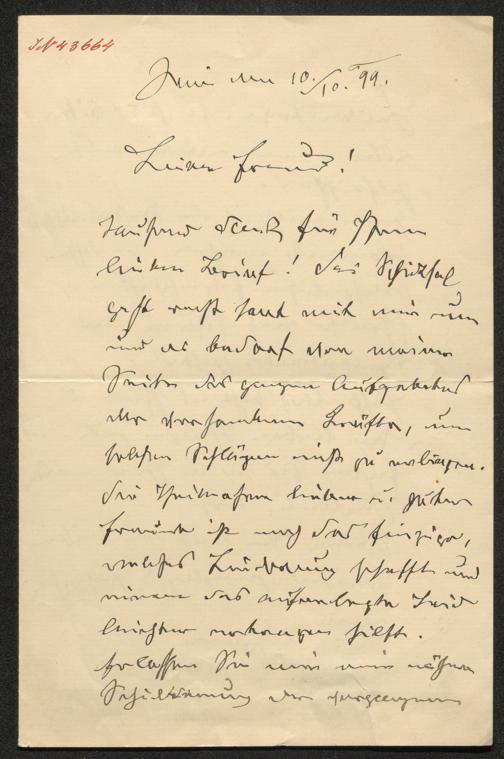 IN 43664
Wien den 10./10. 99.
Lieber Freund!
Tausend Dank für Ihren
lieben Brief! Das Schicksal
geht recht hart mit mir um
und es bedarf von meiner
Seite des ganzen Aufgebotes
der vorhandenen Kräfte, um
solchen Schlägen nicht zu erliegen.
Die Theilnahme lieber u. guter
Freunde ist noch das Einzige,
welches Linderung schafft und
einem das auferlegte Leid
leichter ertragen hilft.
Erlassen Sie mir eine nähere
Schilderung der